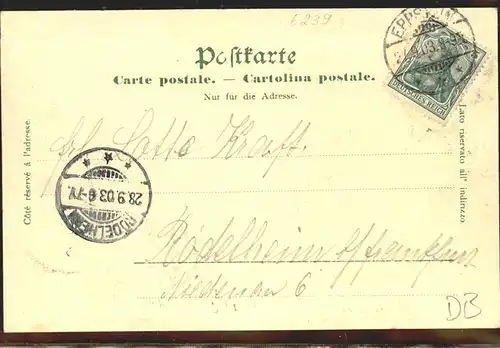 6239
Postkarte
Carte postale. — Cartolina postale.
Nur für die Adresse.
EPPSTEIN
DEUTSCHES REICH
Côté réservé à l'adresse.
Lato riservato all' indirizzo
Frl. Lotte Kraft.
28.9.03.6-7V.
RÖDELHEIM
Rödelheim b/Frankfurt
Niedenau 6
DB